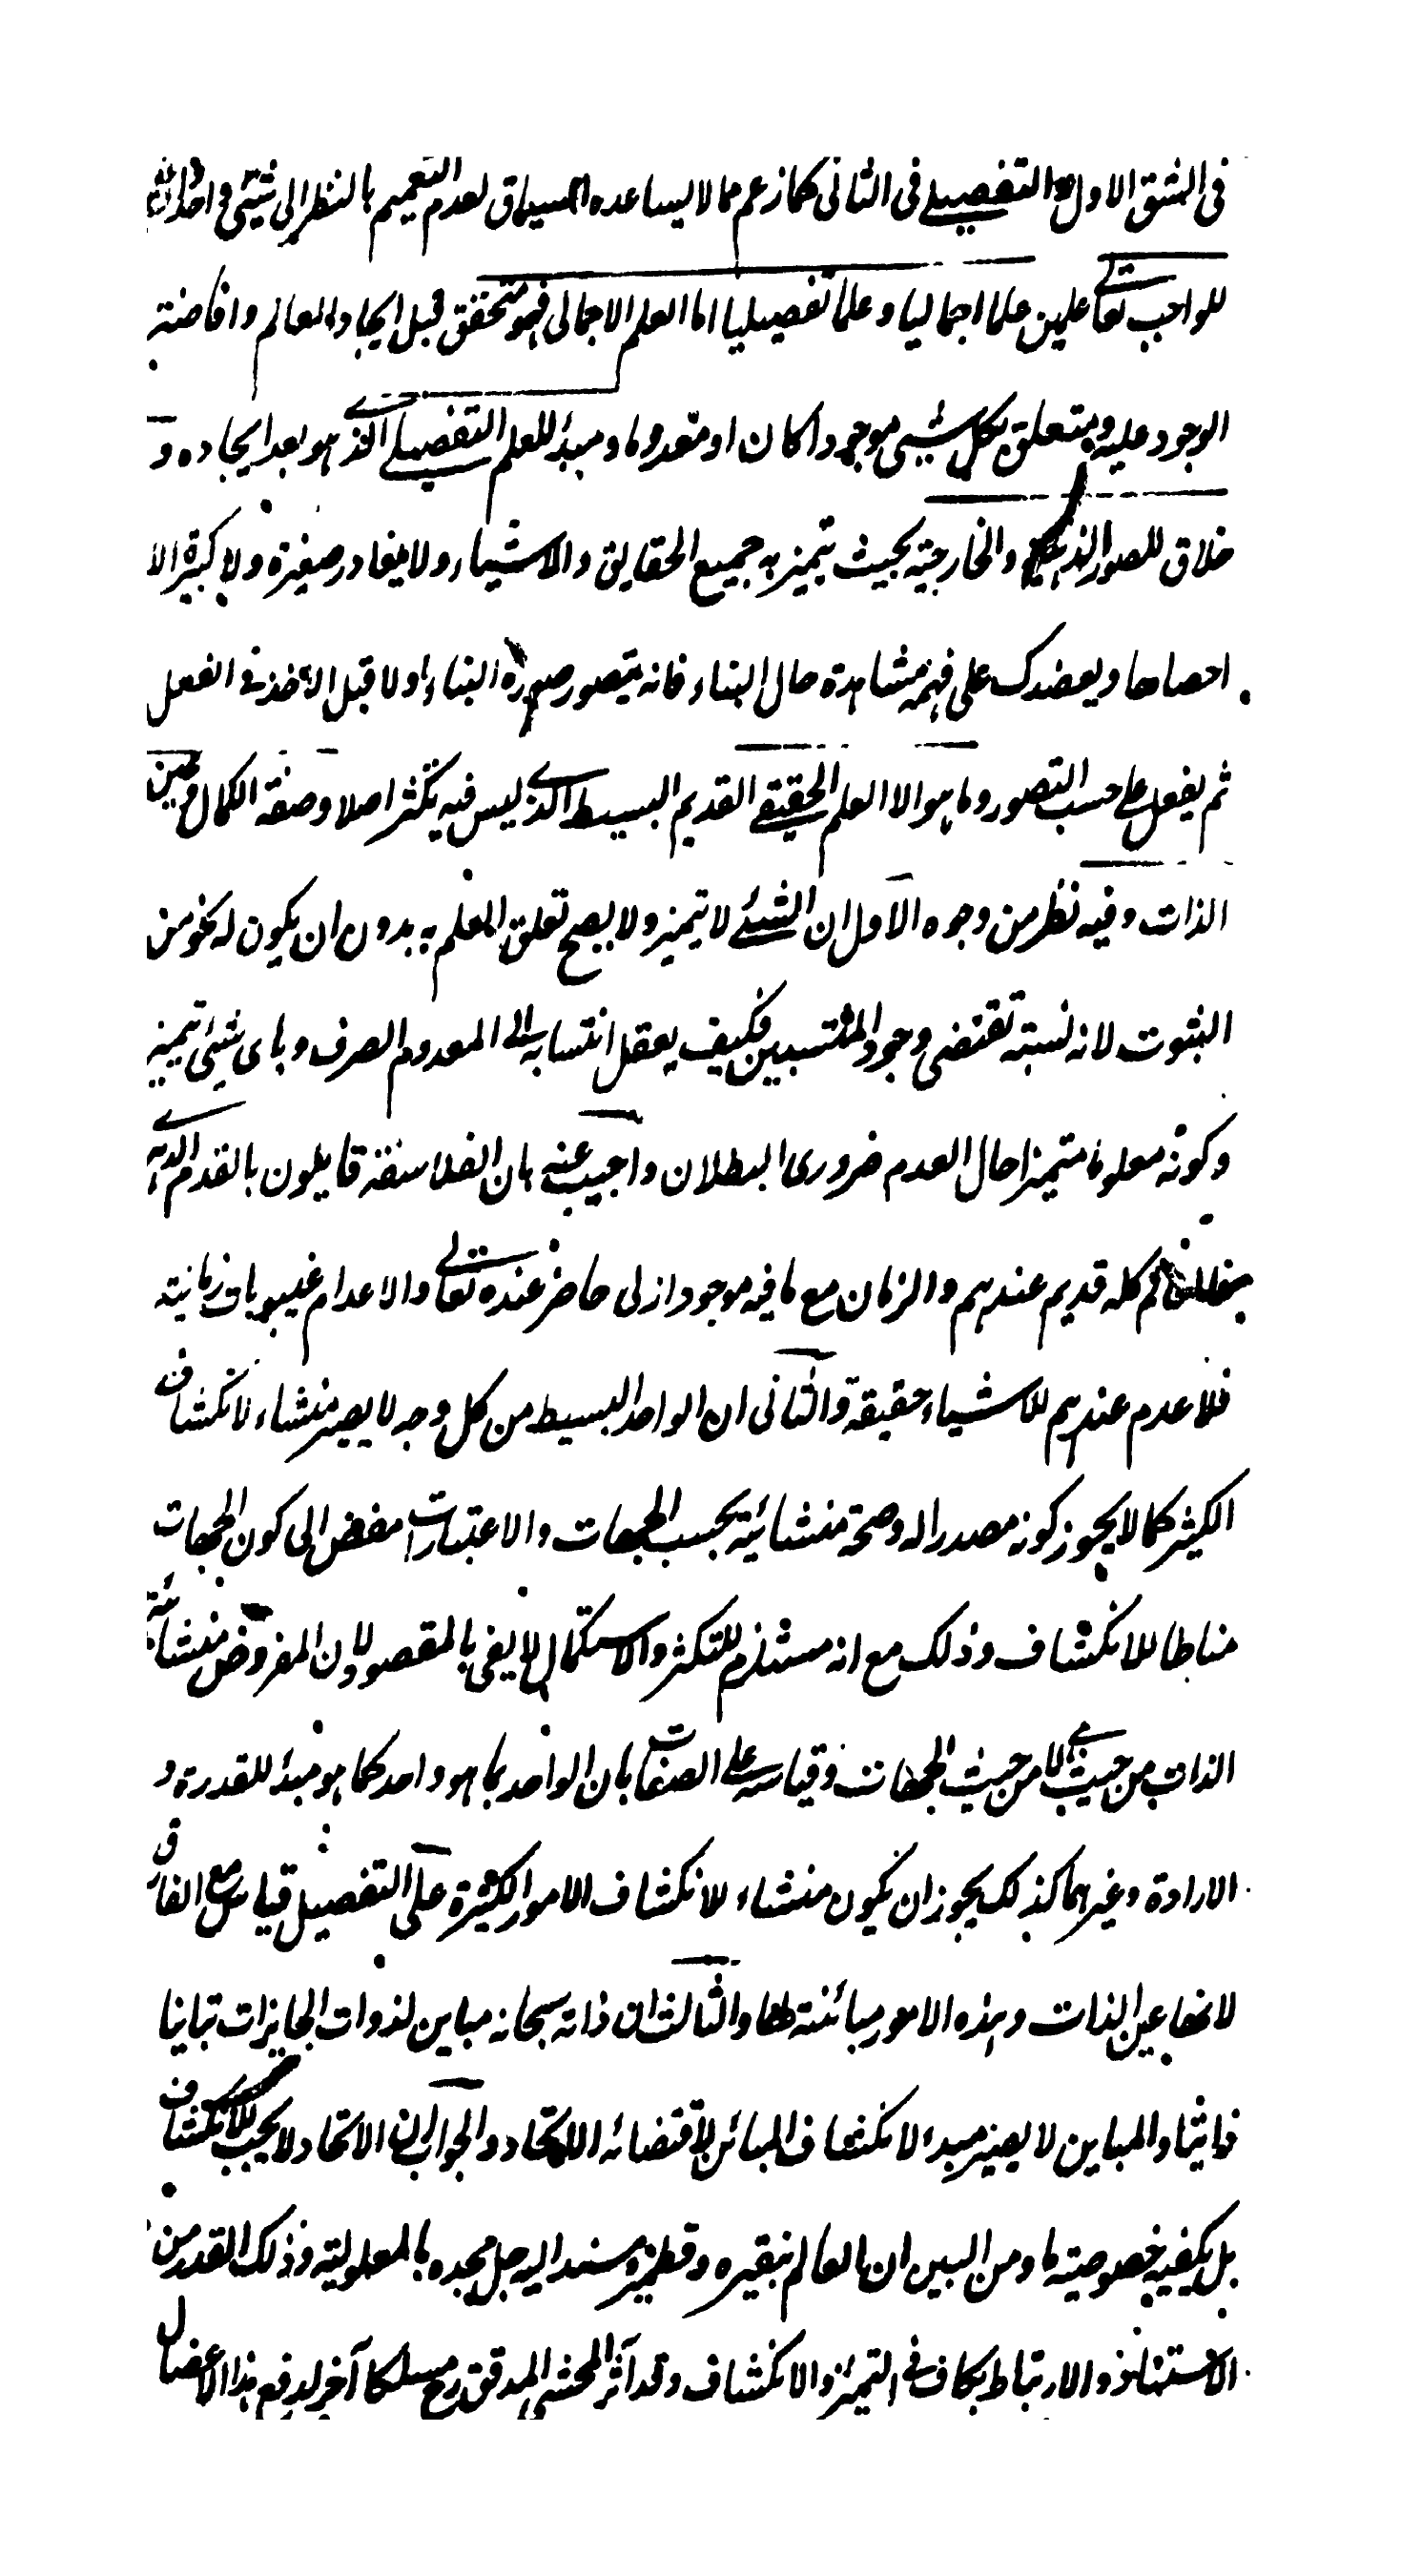 في الشق الاول والتفصيلي في الثاني كما زعم مما لا يساعده السياق لعدم التعميم بالنظر الى شيئ واحد
للواجب تعالى علمين علما اجماليا وعلما تفصيليا اما العلم الاجمالي فهو متحقق قبل ايجاد العالم وافاضته
الوجود عليه ويتعلق بكل شيئ موجودا كان او معدوما ومبدأ للعلم التفصيلي الذي هو بعد ايجاده و
خلاق للصور الذهنية والخارجية بحيث يتميز به جميع الحقايق والاشياء ولا يغادر صغيرة ولا كبيرة الا
احصاها ويعضدك على فهمه مشاهدة حال البناء فانه يتصور صورة البناء اولا قبل الاخذ في الفعل
ثم يفعل على حسب التصور وما هو الا العلم الحقيقي القديم البسيط الذي ليس فيه تكثر اصلا وصفة الكمال وعين
الذات وفيه نظر من وجوه الاول ان الشيئ لا يتميز ولا يصح تعلق العلم به بدون ان يكون له نحو من
الثبوت لانه نسبة تقتضي وجود المنتسبين فكيف يعقل انتسابه الى المعدوم الصرف وباى شيئ تميز
وكونه معلوما متميزا حال العدم ضروري البطلان واجيب عنه بان الفلاسفة قايلون بالقدم الدهري
فالعالم كله قديم عندهم والزمان مع ما فيه موجود ازلى حاضر عنده تعالى والاعدام غيبوبات زمانية
فلا عدم عندهم للاشياء حقيقة والثاني ان الواحد البسيط من كل وجه لا يصير منشاء لانكشاف
الكثير كما لا يجوز كونه مصدرا له وصحة منشائية بحسب الجهات والاعتبارات مفض الى كون الجهات
مناطا للانكشاف وذلك مع انه مستلزم للتكثر والاستكمال لا يفي بالمقصود لان المفروض منشائية
الذات من حيث هي لا من حيث الجهات وقياسه على الصفات بان الواحد بما هو واحد كما هو مبدأ للقدرة و
الارادة وغيرهما كذلك يجوز ان يكون منشاء للانكشاف الامور الكثيرة على التفصيل قياس مع الفارق
لانها عين الذات وهذه الامور مبائنة لها والثالث ان ذاته سبحانه مباين لذوات الجايزات تباينا
ذاتيا والمباين لا يصير مبدء لانكشاف المبائن لاقتضائه الاتحاد والجواب ان الاتحاد لا يجب للانكشاف
بل يكفيه خصوصية ما ومن البين ان العالم بنقيره وقطميره مسند اليه جل مجده بالمعلولية وذلك القدر من
الاستناد والارتباط كاف في التميز والانكشاف وقد آثر المحشي المدقق رح مسلكا آخر لدفع هذا الاعضال